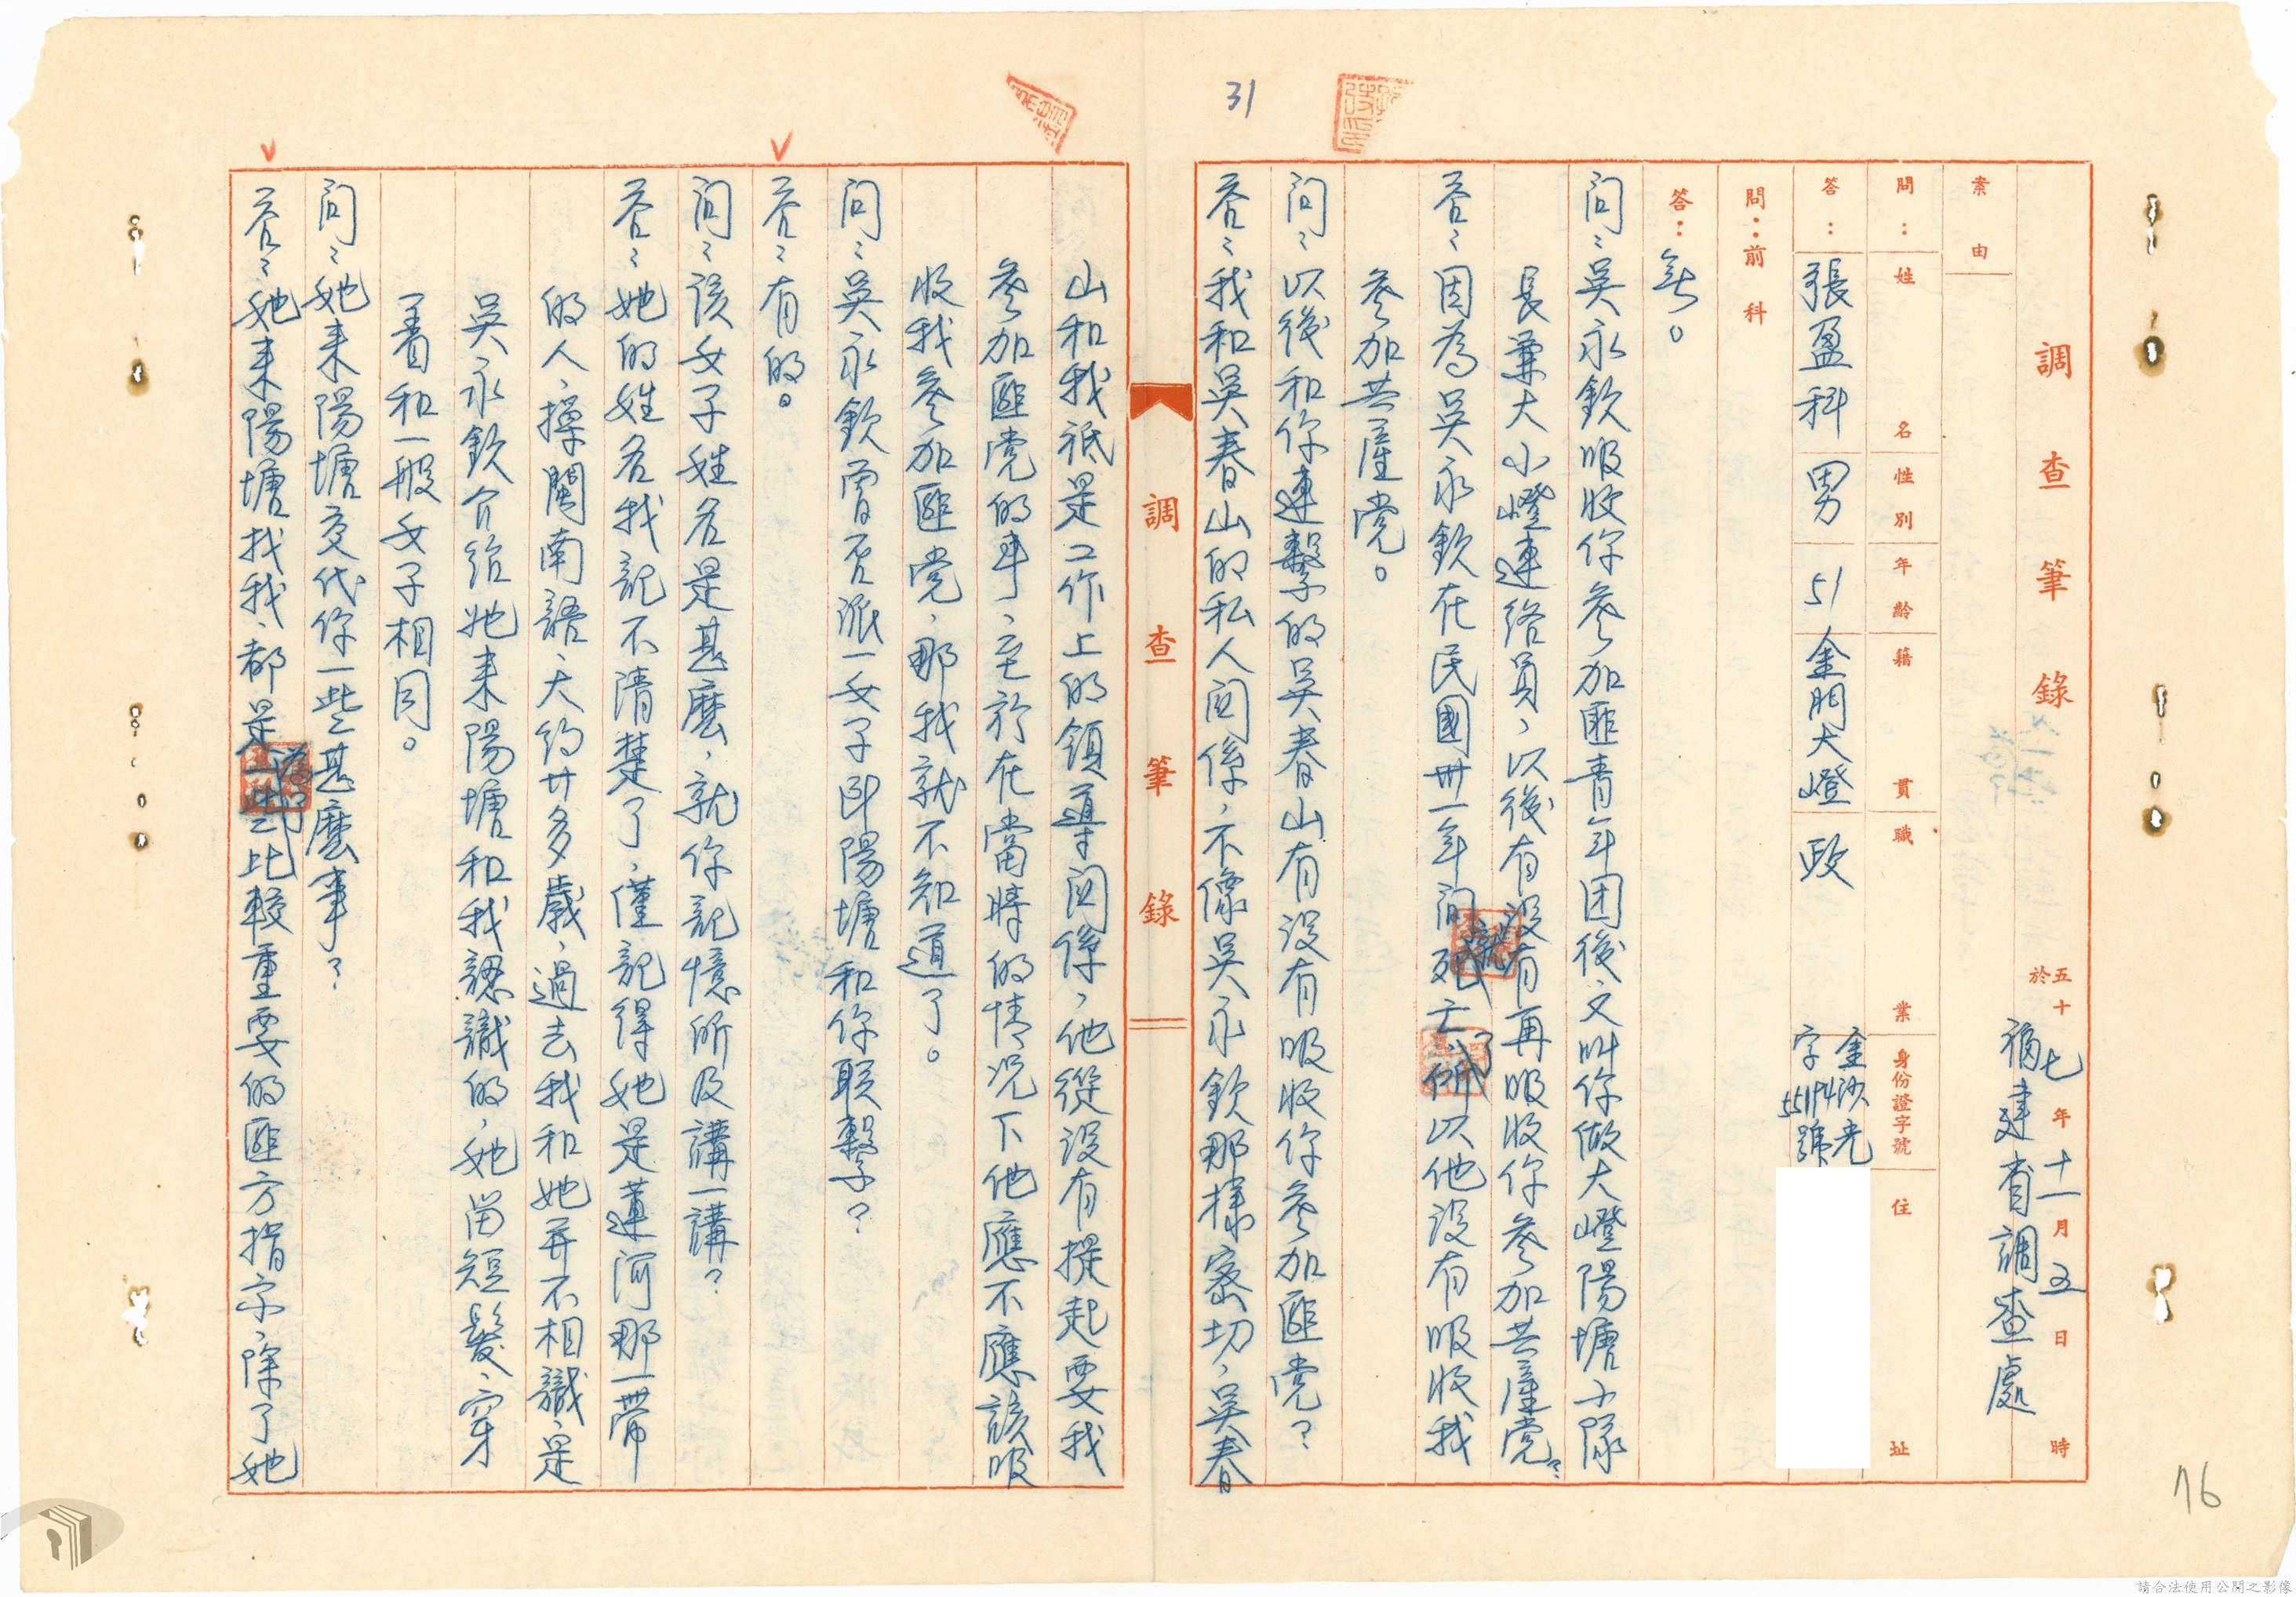 31
調查筆錄
五十七年十一月五日 時
於福建省調查處
案由
問：姓名 性別 年齡 籍貫 職業 身份證字號 住址
答：張盈科 男 51 金門大嶝 政 金沙光字55194號
問：前科
答：無。
問：吳永欽吸收你參加匪青年团後，又叫你做大嶝陽塘小隊
長兼大小嶝連絡員，以後有沒有再吸收你參加共產党？
答：因為吳永欽在民國卅一年間就死亡了所以他沒有吸收我
參加共產党。
問：以後和你連繫的吳春山有沒有吸收你參加匪党？
答：我和吳春山的私人関係，不像吳永欽那樣密切，吳春
調查筆錄
山和我祗是工作上的領導関係，他從沒有提起要我
參加匪党的事，至於在當時的情況下他應不應該吸
收我參加匪党，那我就不知道了。
問：吳永欽曾否派一女子到陽塘和你联繫？
答：有的。
問：該女子姓名是甚麼，就你記憶所及講一講？
答：她的姓名我記不清楚了，僅記得她是蓮河那一帶
的人，操閩南語，大約廿多歲，過去我和她并不相識，是
吳永欽介紹她來陽塘和我認識的，她留短髮，穿
著和一般女子相同。
問：她來陽塘交代你一些甚麼事？
答：她來陽塘找我，都是一些比較重要的匪方指示，除了她
76
請合法使用公開之影像